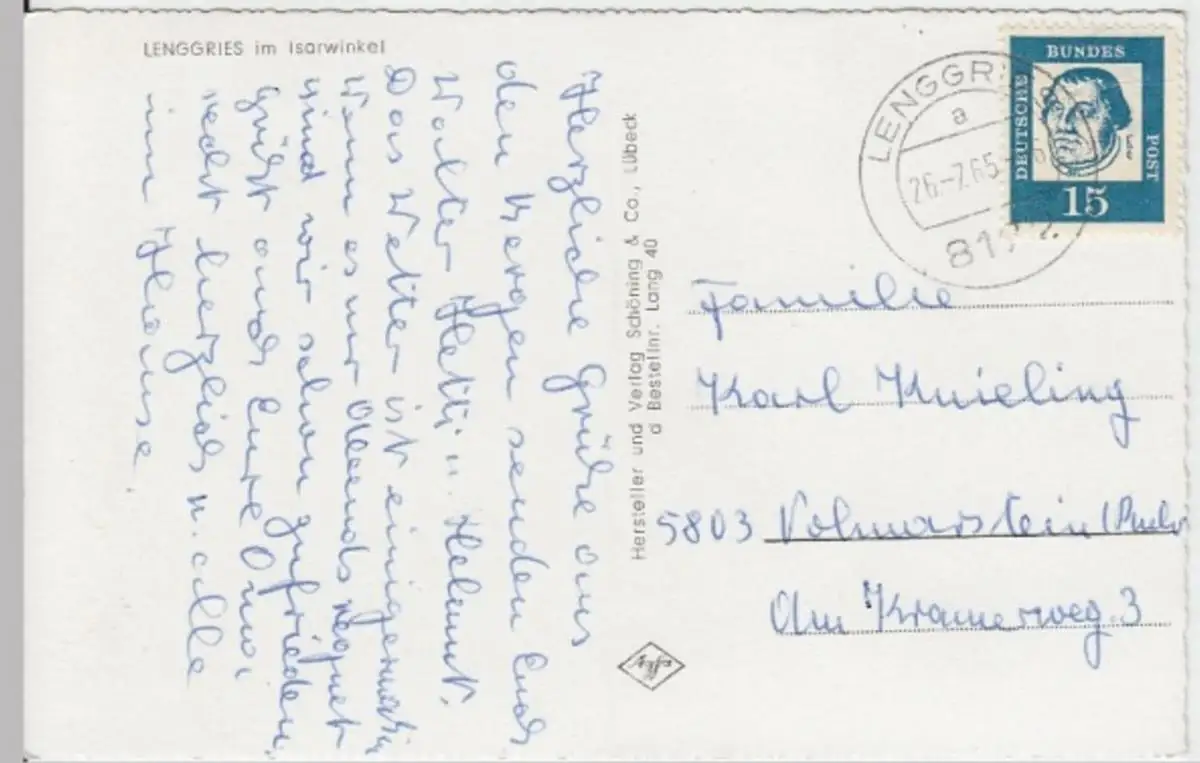 LENGGRIES im Isarwinkel
Herzliche Grüße aus
den Bergen senden Euch
Walter Hetti u. Helmut.
Das Wetter ist einigermaßen
Wenn es nur Abends regnet
sind wir schon zufrieden.
grüßt auch Eure Omi
recht herzlich u. alle
im Hause.
Hersteller und Verlag Schöning & Co., Lübeck
a Bestellnr. Lang 40
Agfa
LENGGR
a
26.-7.65
811
DEUTSCHE
BUNDES
POST
15
Familie
Karl Knieling
5803 Volmarstein (Ruhr
Am Kramerweg 3